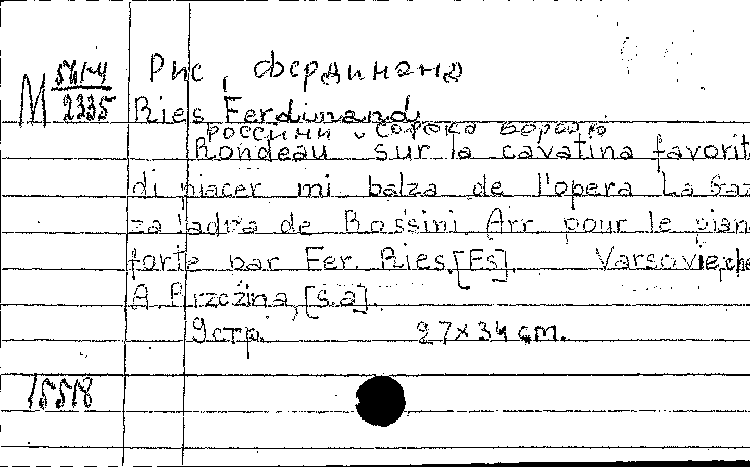 М 561-4/2335
Рис, Фердинанд
Ries Ferdinand
россини. сорока воровка
Rondeau sur la cavatina favorit
di piacer mi balza de l'opera La Gaz
za ladra de Rossini. Arr. pour le pian
forte par Fer. Ries.[Es]. Varsovie, che
A Brzezina, [s.a].
9 стр. 27×34 cm.
15518